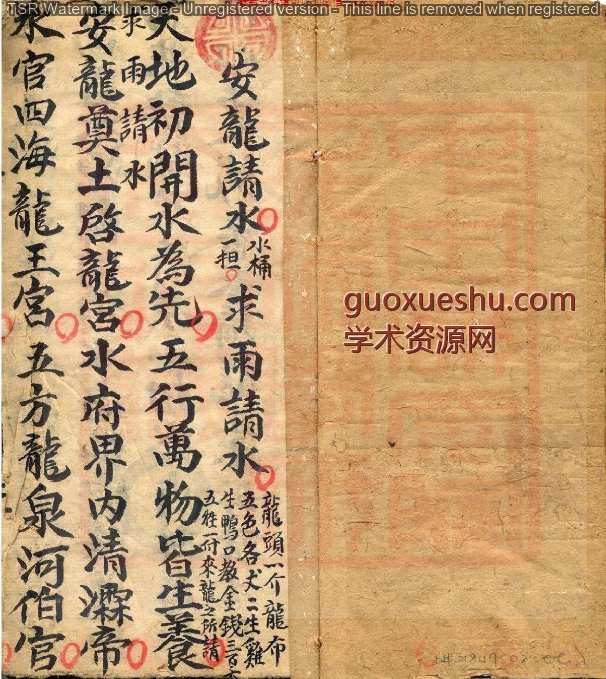 TSR Watermark Image - Unregistered version - This line is removed when registered
安龍請水 水桶一担 求雨請水
龍頭一介龍布
五色各丈二生雞
生鴨口教金錢三百
五牲一付來龍之所請
天地初開水為先五行萬物皆生養
求雨請水
安龍奠土啓龍宮水府界內清帝
水官四海龍王宮五方龍泉河伯官
guoxueshu.com
学术资源网